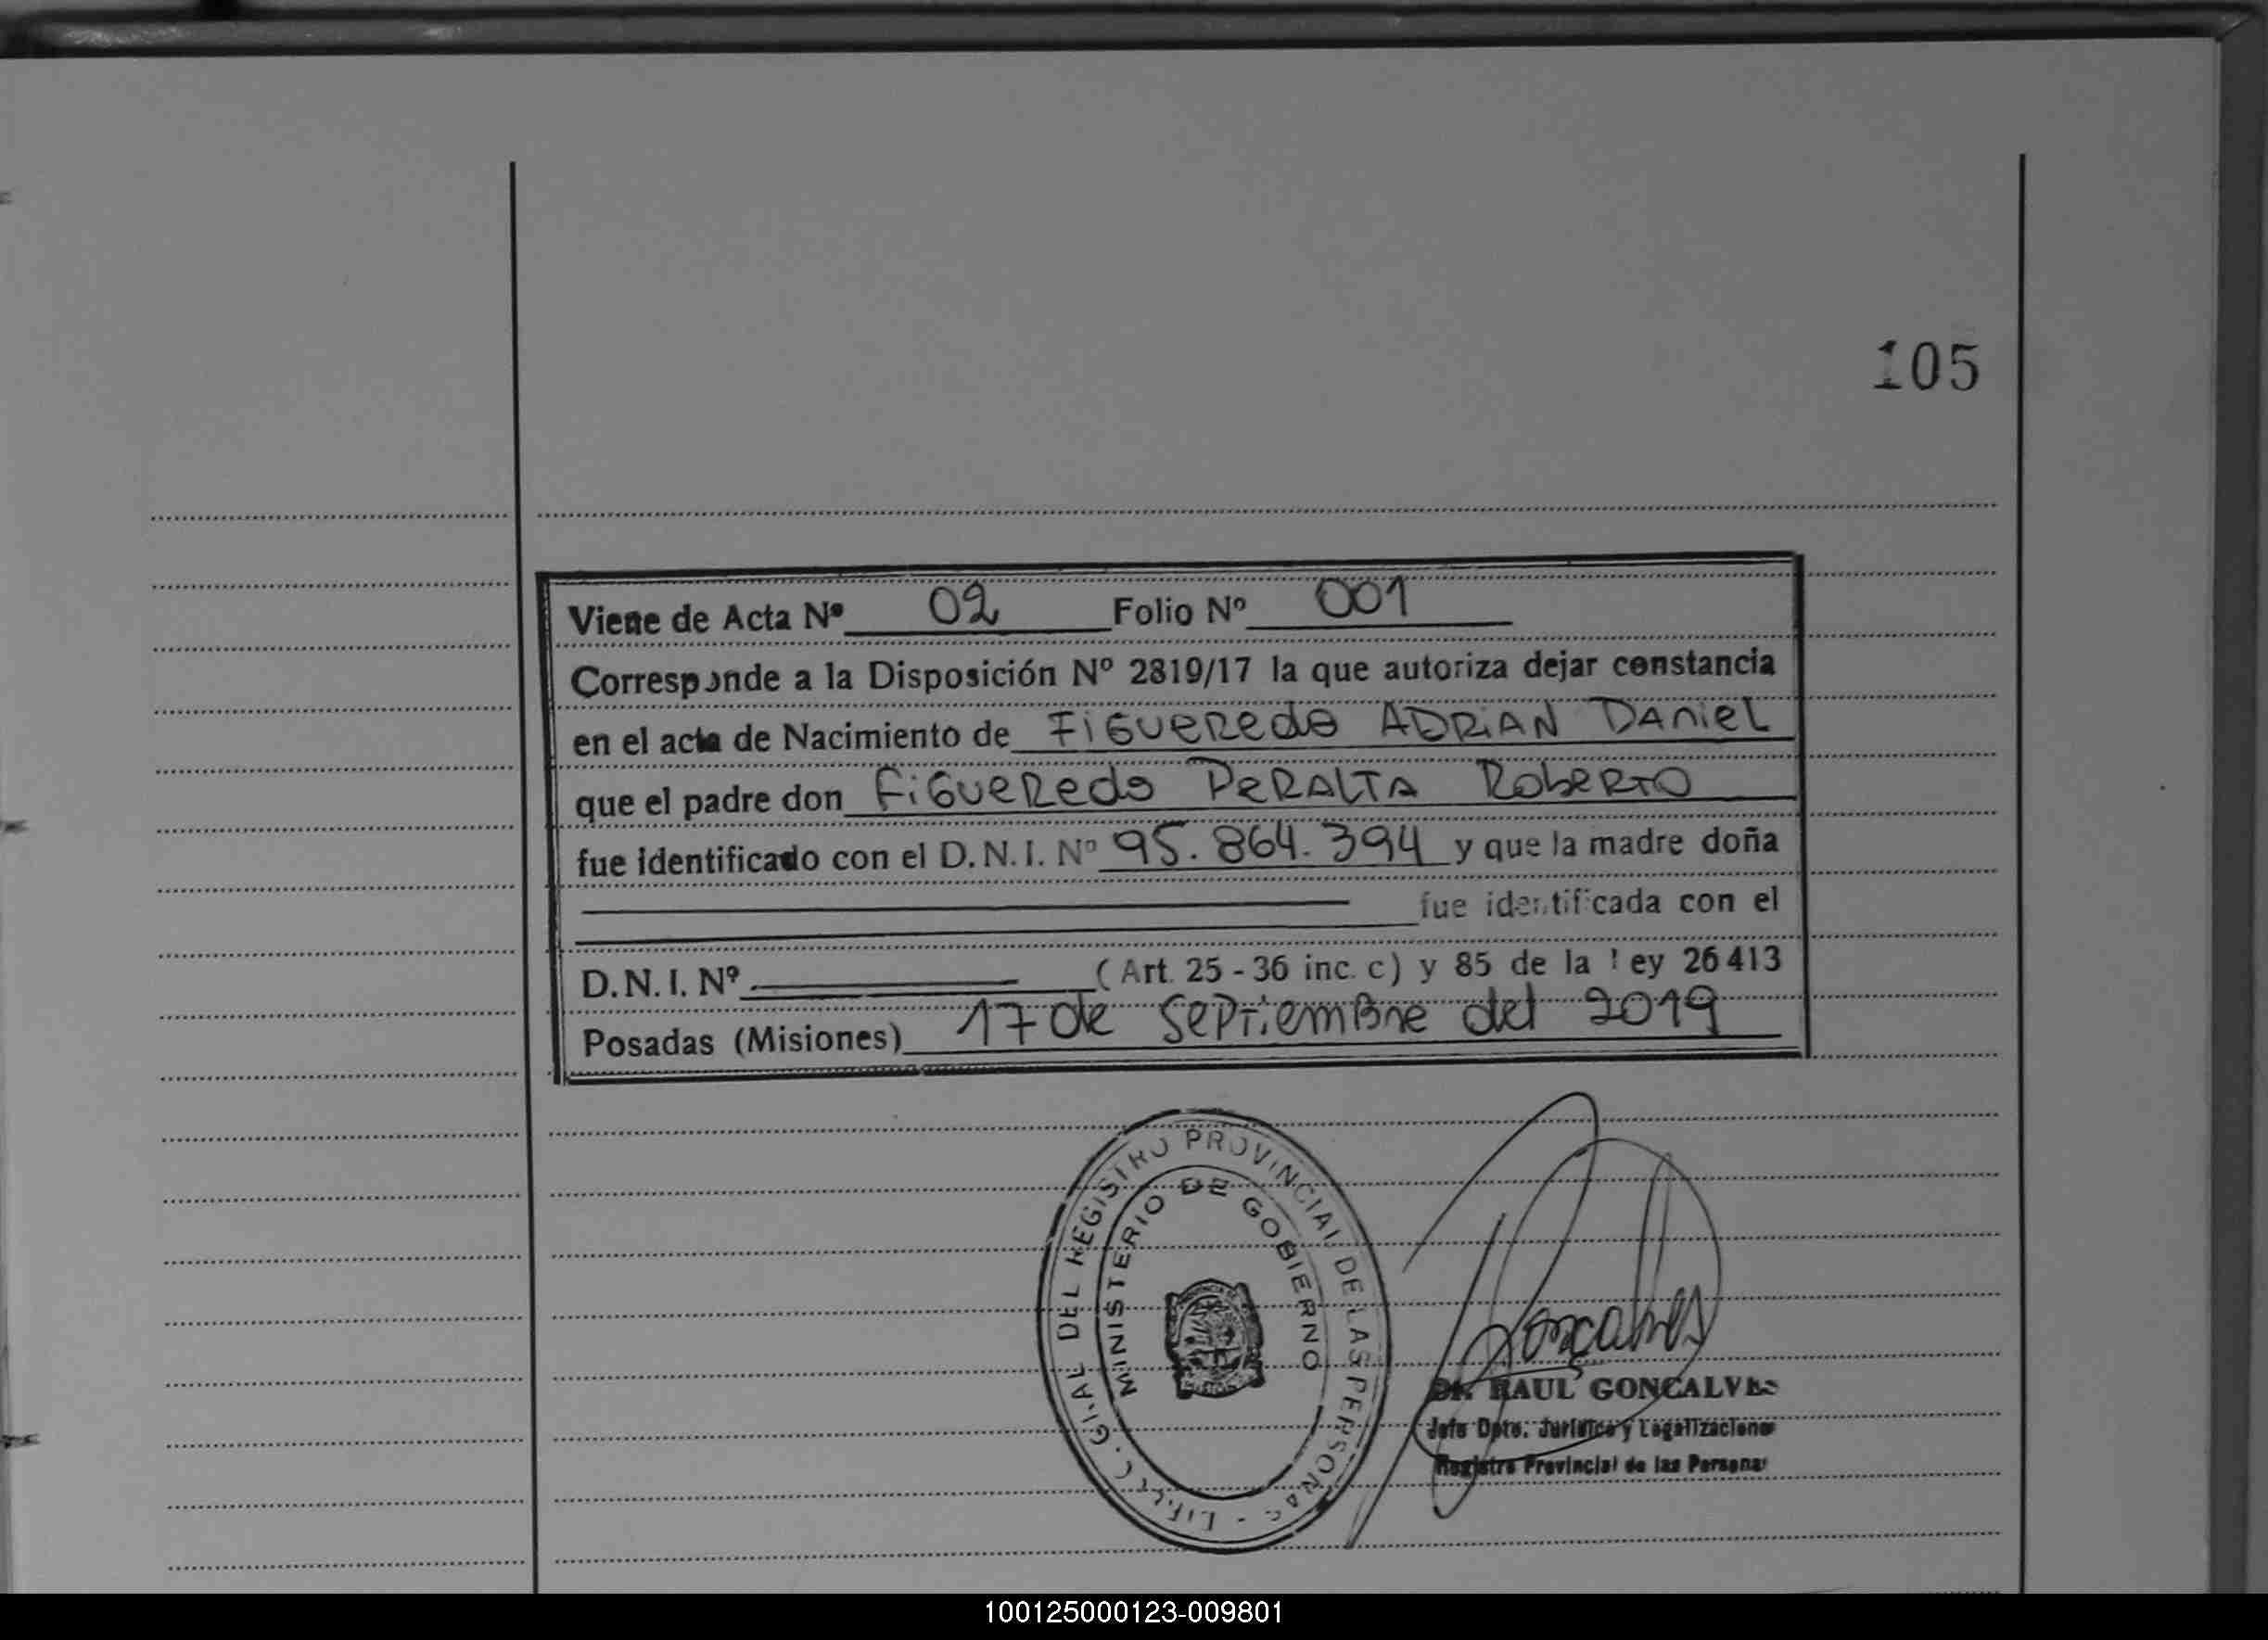 105
Viene de Acta Nº 02 Folio Nº 001
Corresponde a la Disposición Nº 2819/17 la que autoriza dejar constancia
en el acta de Nacimiento de FiGUeRedo ADRiAN DAnieL
que el padre don FiGUeRedo PeRALTA RobeRTO
fue identificado con el D.N.I. Nº 95.864.394 y que la madre doña
fue identificada con el
D.N.I. Nº (Art. 25 - 36 inc. c) y 85 de la ley 26413
Posadas (Misiones) 17 de SepTiemBre del 2019
GRAL DEL REGISTRO PROVINCIAL DE LAS PERSONAS
MINISTERIO DE GOBIERNO
Goncalves
Dr. RAUL GONÇALVES
Jefe Dpto. Jurídico y Legalizaciones
Registro Provincial de las Personas
100125000123-009801